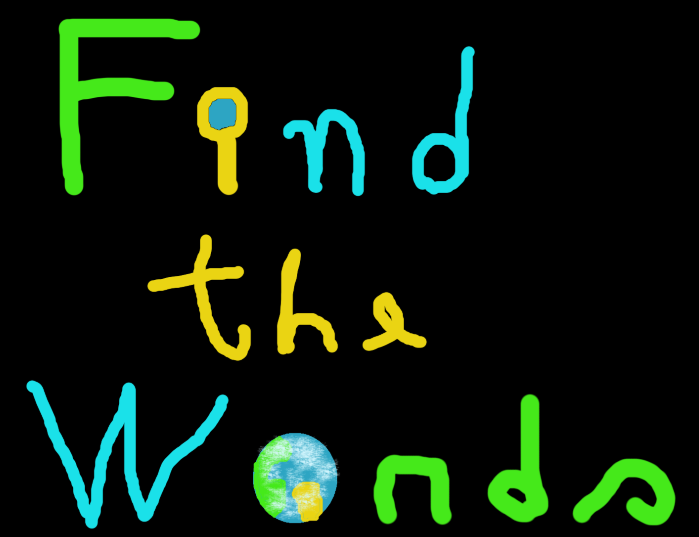 Find
the
Words